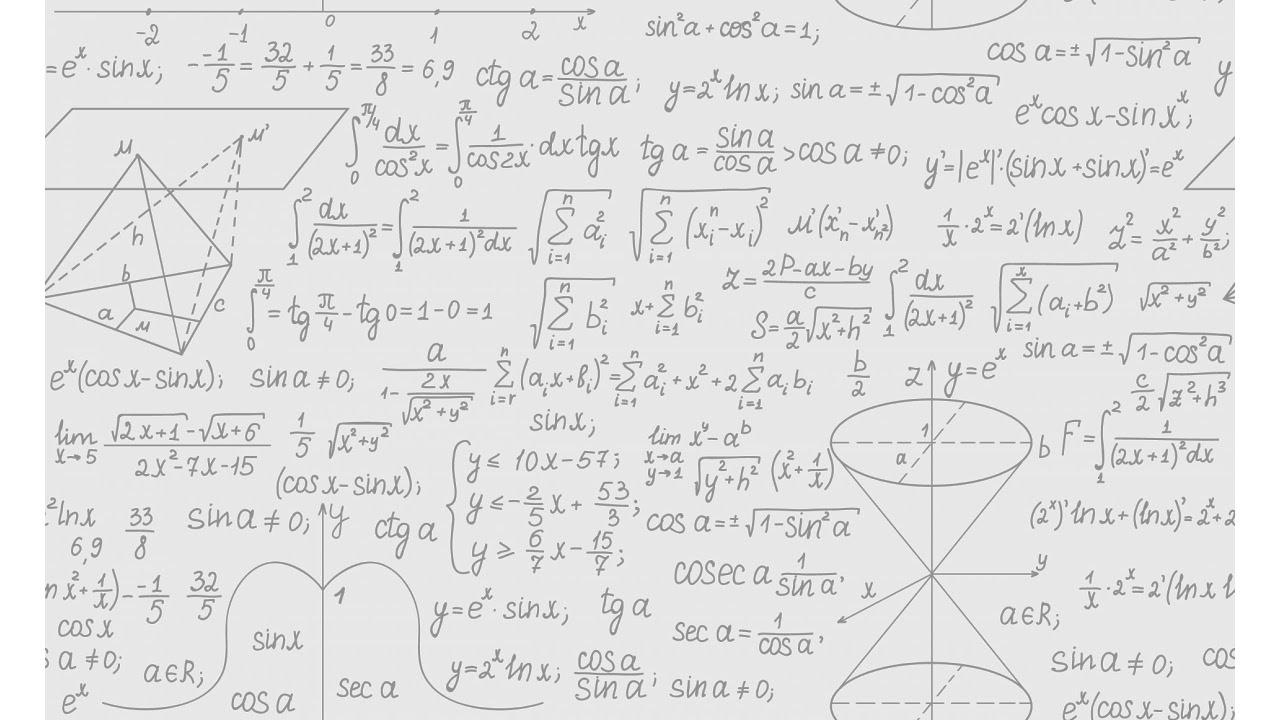 -2 -1 0 1 2 x
sin²a + cos²a = 1;
cos a = ± √(1-sin²a)
y
= eˣ · sinx; - -1/5 = 32/5 + 1/5 = 33/8 = 6,9
ctg a = cos a/sin a;
y = 2ˣ ln x; sin a = ± √(1-cos²a)
eˣcos x - sin xˣ;
M M'
∫₀^(π/4) dx/cos²x = ∫₀^(π/4) 1/cos2x · dx tgx
tg a = sin a/cos a > cos a ≠ 0;
y' = |eˣ|'·(sinx + sinx)' = eˣ
h b a M c
∫₁² dx/(2x+1)² = ∫₁² 1/(2x+1)²dx
√(∑ⁿᵢ₌₁ aᵢ²) √(∑ⁿᵢ₌₁ (xᵢⁿ - xᵢ)²)
M'(x'ₙ - x'ₙ²)
1/x · 2ˣ = 2'(ln x)
z² = x²/a² + y²/b²;
∫₀^(π/4) = tg π/4 - tg 0 = 1 - 0 = 1
√(∑ⁿᵢ₌₁ bᵢ²) x + ∑ⁿᵢ₌₁ bᵢ²
z = 2P-ax-by/c
S = a/2 √(x²+h²)
∫₁² dx/(2x+1)²
√(∑ˣᵢ₌₁ (aᵢ+b²)) √(x²+y²)
eˣ(cos x - sinx); sin a ≠ 0;
a/(1- 2x/√(x²+y²))
∑ⁿᵢ₌ᵣ (aᵢx + bᵢ)² = ∑ⁿᵢ₌₁ aᵢ² + x² + 2∑ⁿᵢ₌₁ aᵢbᵢ
b/2 z y = eˣ
sin a = ± √(1-cos²a)
c/2 √(z²+h³)
lim x→5 (√(2x+1) - √(x+6))/(2x²-7x-15)
1/5 √(x²+y²)
sinx;
lim x→a y→1 xʸ - aᵇ
√(y²+h²) (x² + 1/x)
1 a b
F = ∫₁² 1/(2x+1)²dx
(cos x - sinx);
{ y ≤ 10x - 57;
y ≤ - 2/5 x + 53/3;
y ≥ 6/7 x - 15/7;
²lnx 33/8 sin a ≠ 0; y ctg a
6,9
cos a = ± √(1-sin²a)
(2ˣ)' ln x + (ln x)' = 2ˣ + 2
n x² + 1/x) - -1/5 32/5
1
cosec a 1/sin a, x y
1/x · 2ˣ = 2'(ln x
y = eˣ · sinx; tg a
sec a = 1/cos a,
a∈R;
cos x
sinx
s a ≠ 0; a∈R;
y = 2ˣ ln x; cos a/sin a; sin a ≠ 0;
sin a ≠ 0; cos
eˣ cos a sec a
eˣ(cos x - sinx);